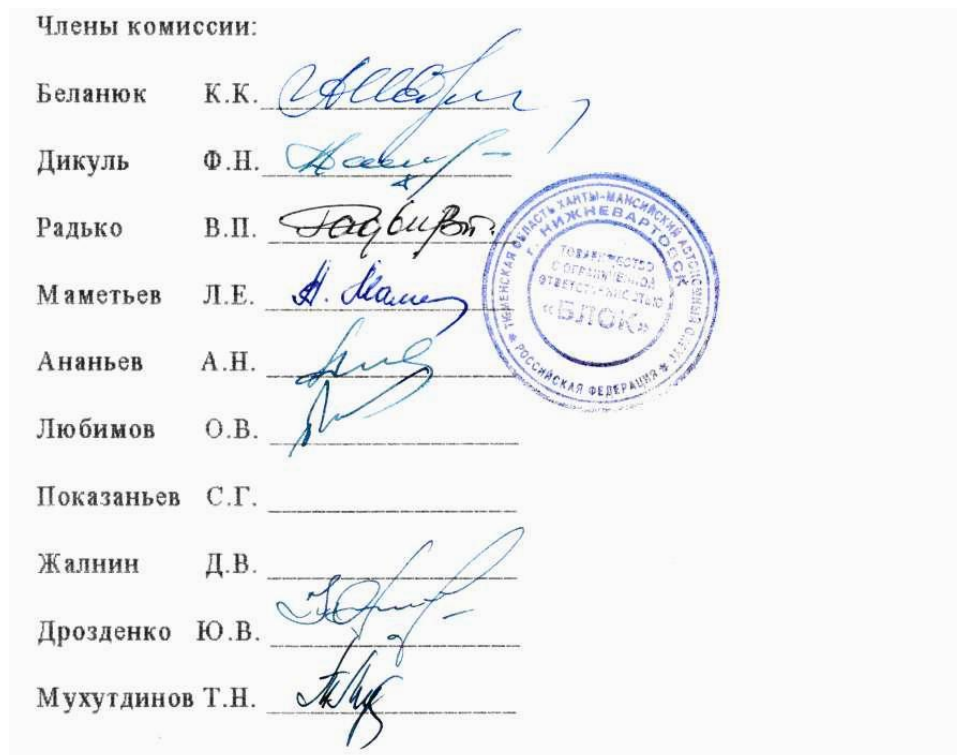 Члены комиссии:
Беланюк К.К.
Дикуль Ф.Н.
Радько В.П.
Маметьев Л.Е.
Ананьев А.Н.
Любимов О.В.
Показаньев С.Г.
Жалнин Д.В.
Дрозденко Ю.В.
Мухутдинов Т.Н.
ТЮМЕНСКАЯ ОБЛАСТЬ ХАНТЫ-МАНСИЙСКИЙ АВТОНОМНЫЙ ОКРУГ
г. НИЖНЕВАРТОВСК
ТОВАРИЩЕСТВО
С ОГРАНИЧЕННОЙ
ОТВЕТСТВЕННОСТЬЮ
«БЛОК»
РОССИЙСКАЯ ФЕДЕРАЦИЯ